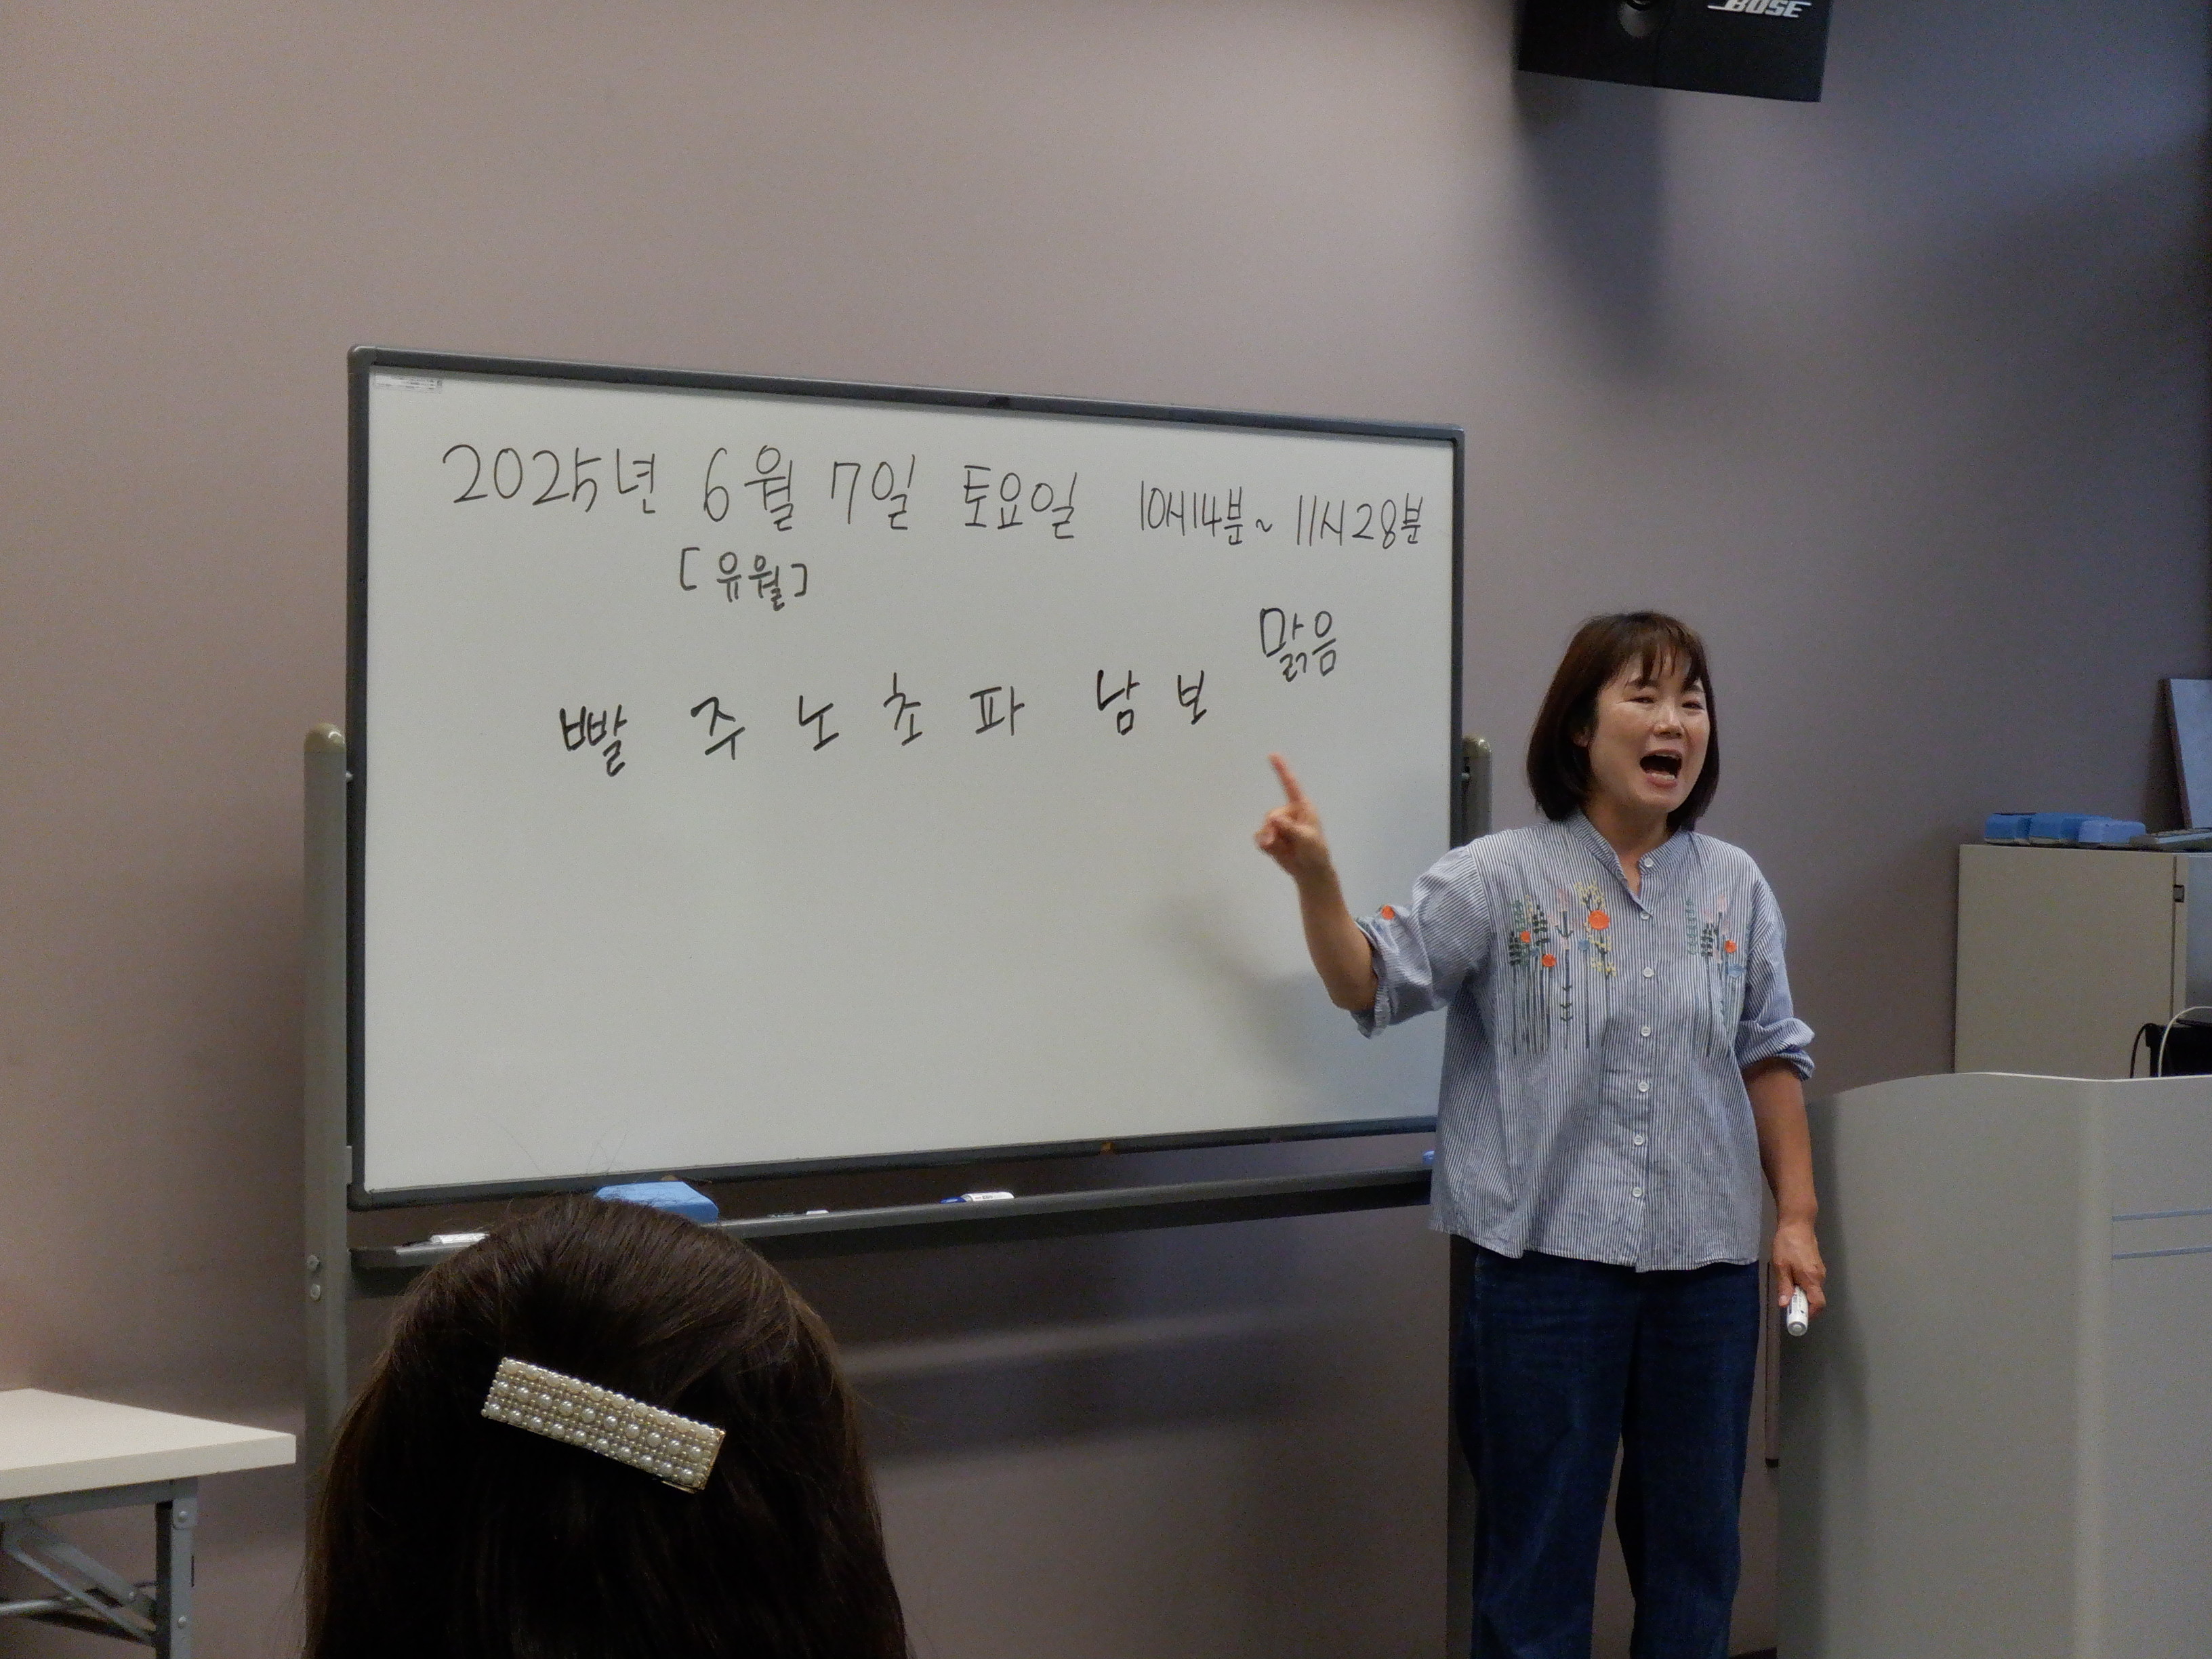 BOSE
2025년 6월 7일 토요일 10시14분~ 11시28분
[유월]
맑음
빨 주 노 초 파 남 보